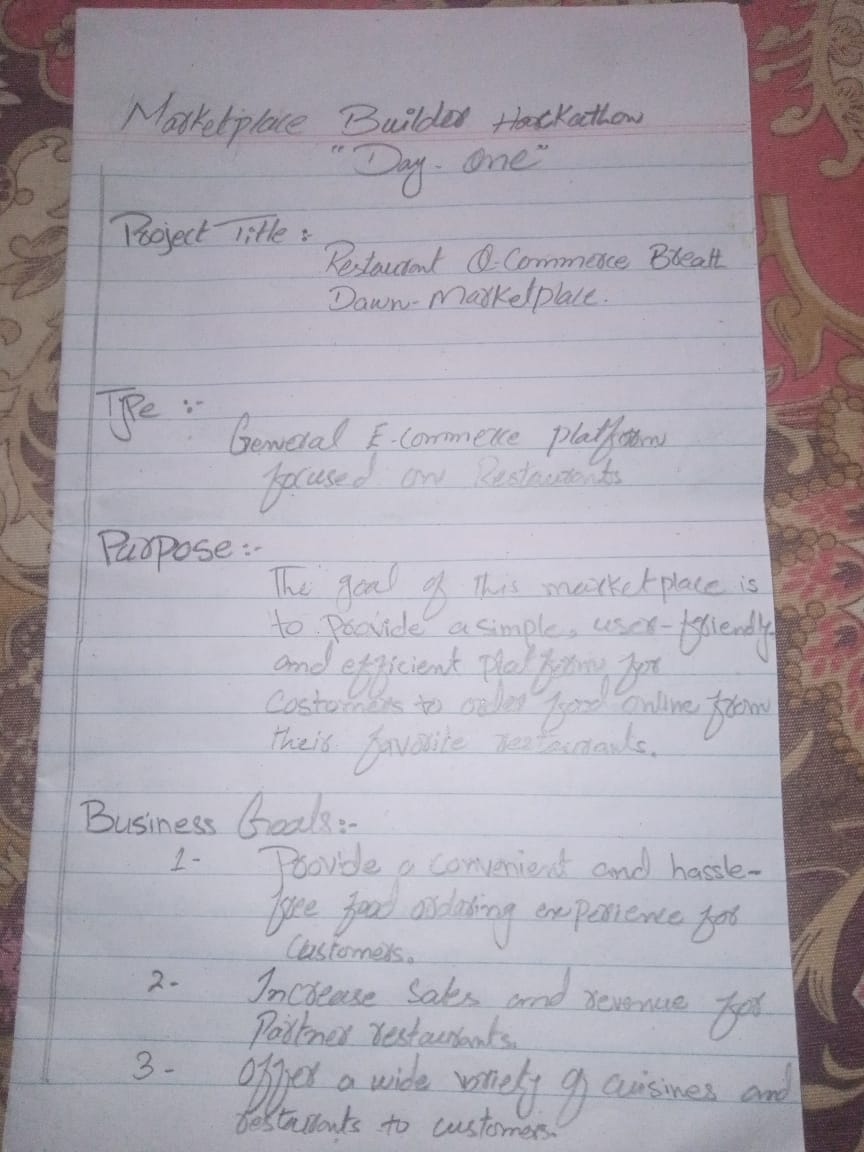 Marketplace Builder Hackathon
"Day-One"
Project Title:
Restaurant Q-Commerce Breatt
Dawn-Marketplace.
Type :-
General E-commerce platform
focused on Restaurants
Purpose:-
The goal of this marketplace is
to Provide a simple, user-friendly
and efficient platform for
Costomers to order food online from
their favorite restaurants.
Business Goals:-
1- Provide a convenient and hassle-
free food ordaring experience for
Customers.
2- Increase Sales and revenue for
Partner restaurants.
3- Offer a wide variety of cuisines and
restaurants to customers.